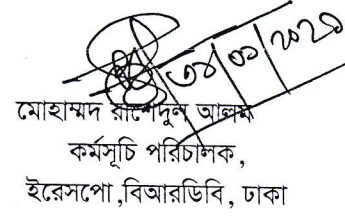 মোহাম্মদ রাশেদুল আলম
কর্মসূচি পরিচালক,
ইরেসপো ,বিআরডিবি , ঢাকা